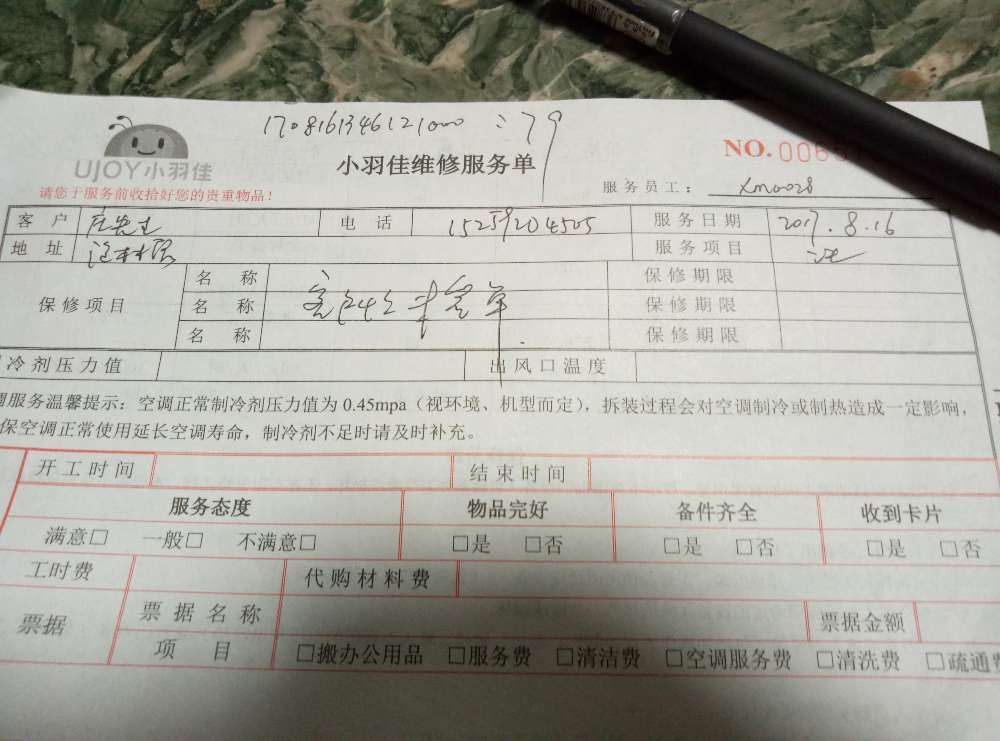 1708161346121000 : 79
UJOY小羽佳
小羽佳维修服务单
NO. 006
请您于服务前收拾好您的贵重物品!
服务员工: xm0028
客户 电话 15259204505 服务日期 2017.8.16
地址 服务项目
保修项目 名称 保修期限
名称 保修期限
名称 保修期限
冷剂压力值 出风口温度
服务温馨提示:空调正常制冷剂压力值为 0.45mpa(视环境、机型而定),拆装过程会对空调制冷或制热造成一定影响,
保空调正常使用延长空调寿命,制冷剂不足时请及时补充。
开工时间 结束时间
服务态度 物品完好 备件齐全 收到卡片
满意□ 一般□ 不满意□ □是 □否 □是 □否 □是 □否
工时费 代购材料费
票据 票据名称 票据金额
项目 □搬办公用品 □服务费 □清洁费 □空调服务费 □清洗费 □疏通费